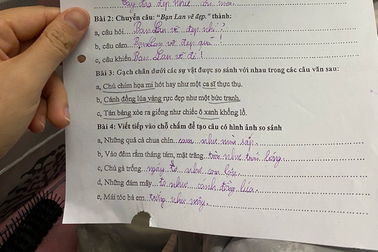 Bài 2: Chuyển câu: "Bạn Lan vẽ đẹp." thành:
a, câu hỏi Bạn Lan vẽ đẹp nhỉ?
b, câu cảm Bạn Lan vẽ đẹp quá!
c, câu khiến Bạn Lan vẽ đi!
Bài 3: Gạch chân dưới các sự vật được so sánh với nhau trong các câu văn sau:
a, Chú chim họa mi hót hay như một ca sĩ thực thụ.
b, Cánh đồng lúa vàng rực đẹp như một bức tranh.
c, Tán bàng xòe ra giống như chiếc ô xanh khổng lồ.
Bài 4: Viết tiếp vào chỗ chấm để tạo câu có hình ảnh so sánh
a, Những quả cà chua chín cam như
b, Vào đêm rằm tháng tám, mặt trăng tròn như bóng
c, Chú gà trống như
d, Những đám mây to như cánh
e, Mái tóc bà em trắng như mây